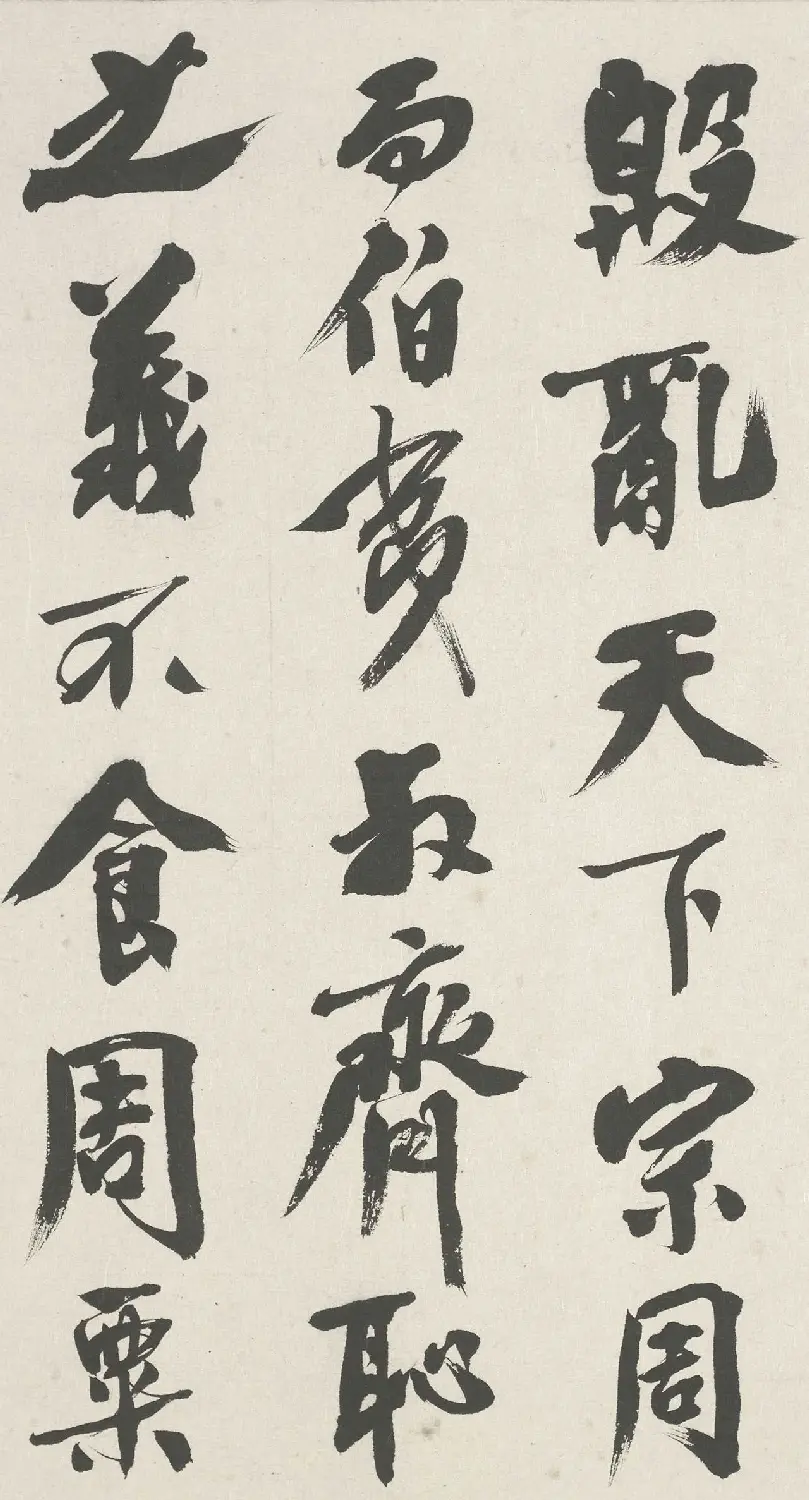 殷亂天下宗周
而伯夷叔齊恥
之義不食周粟